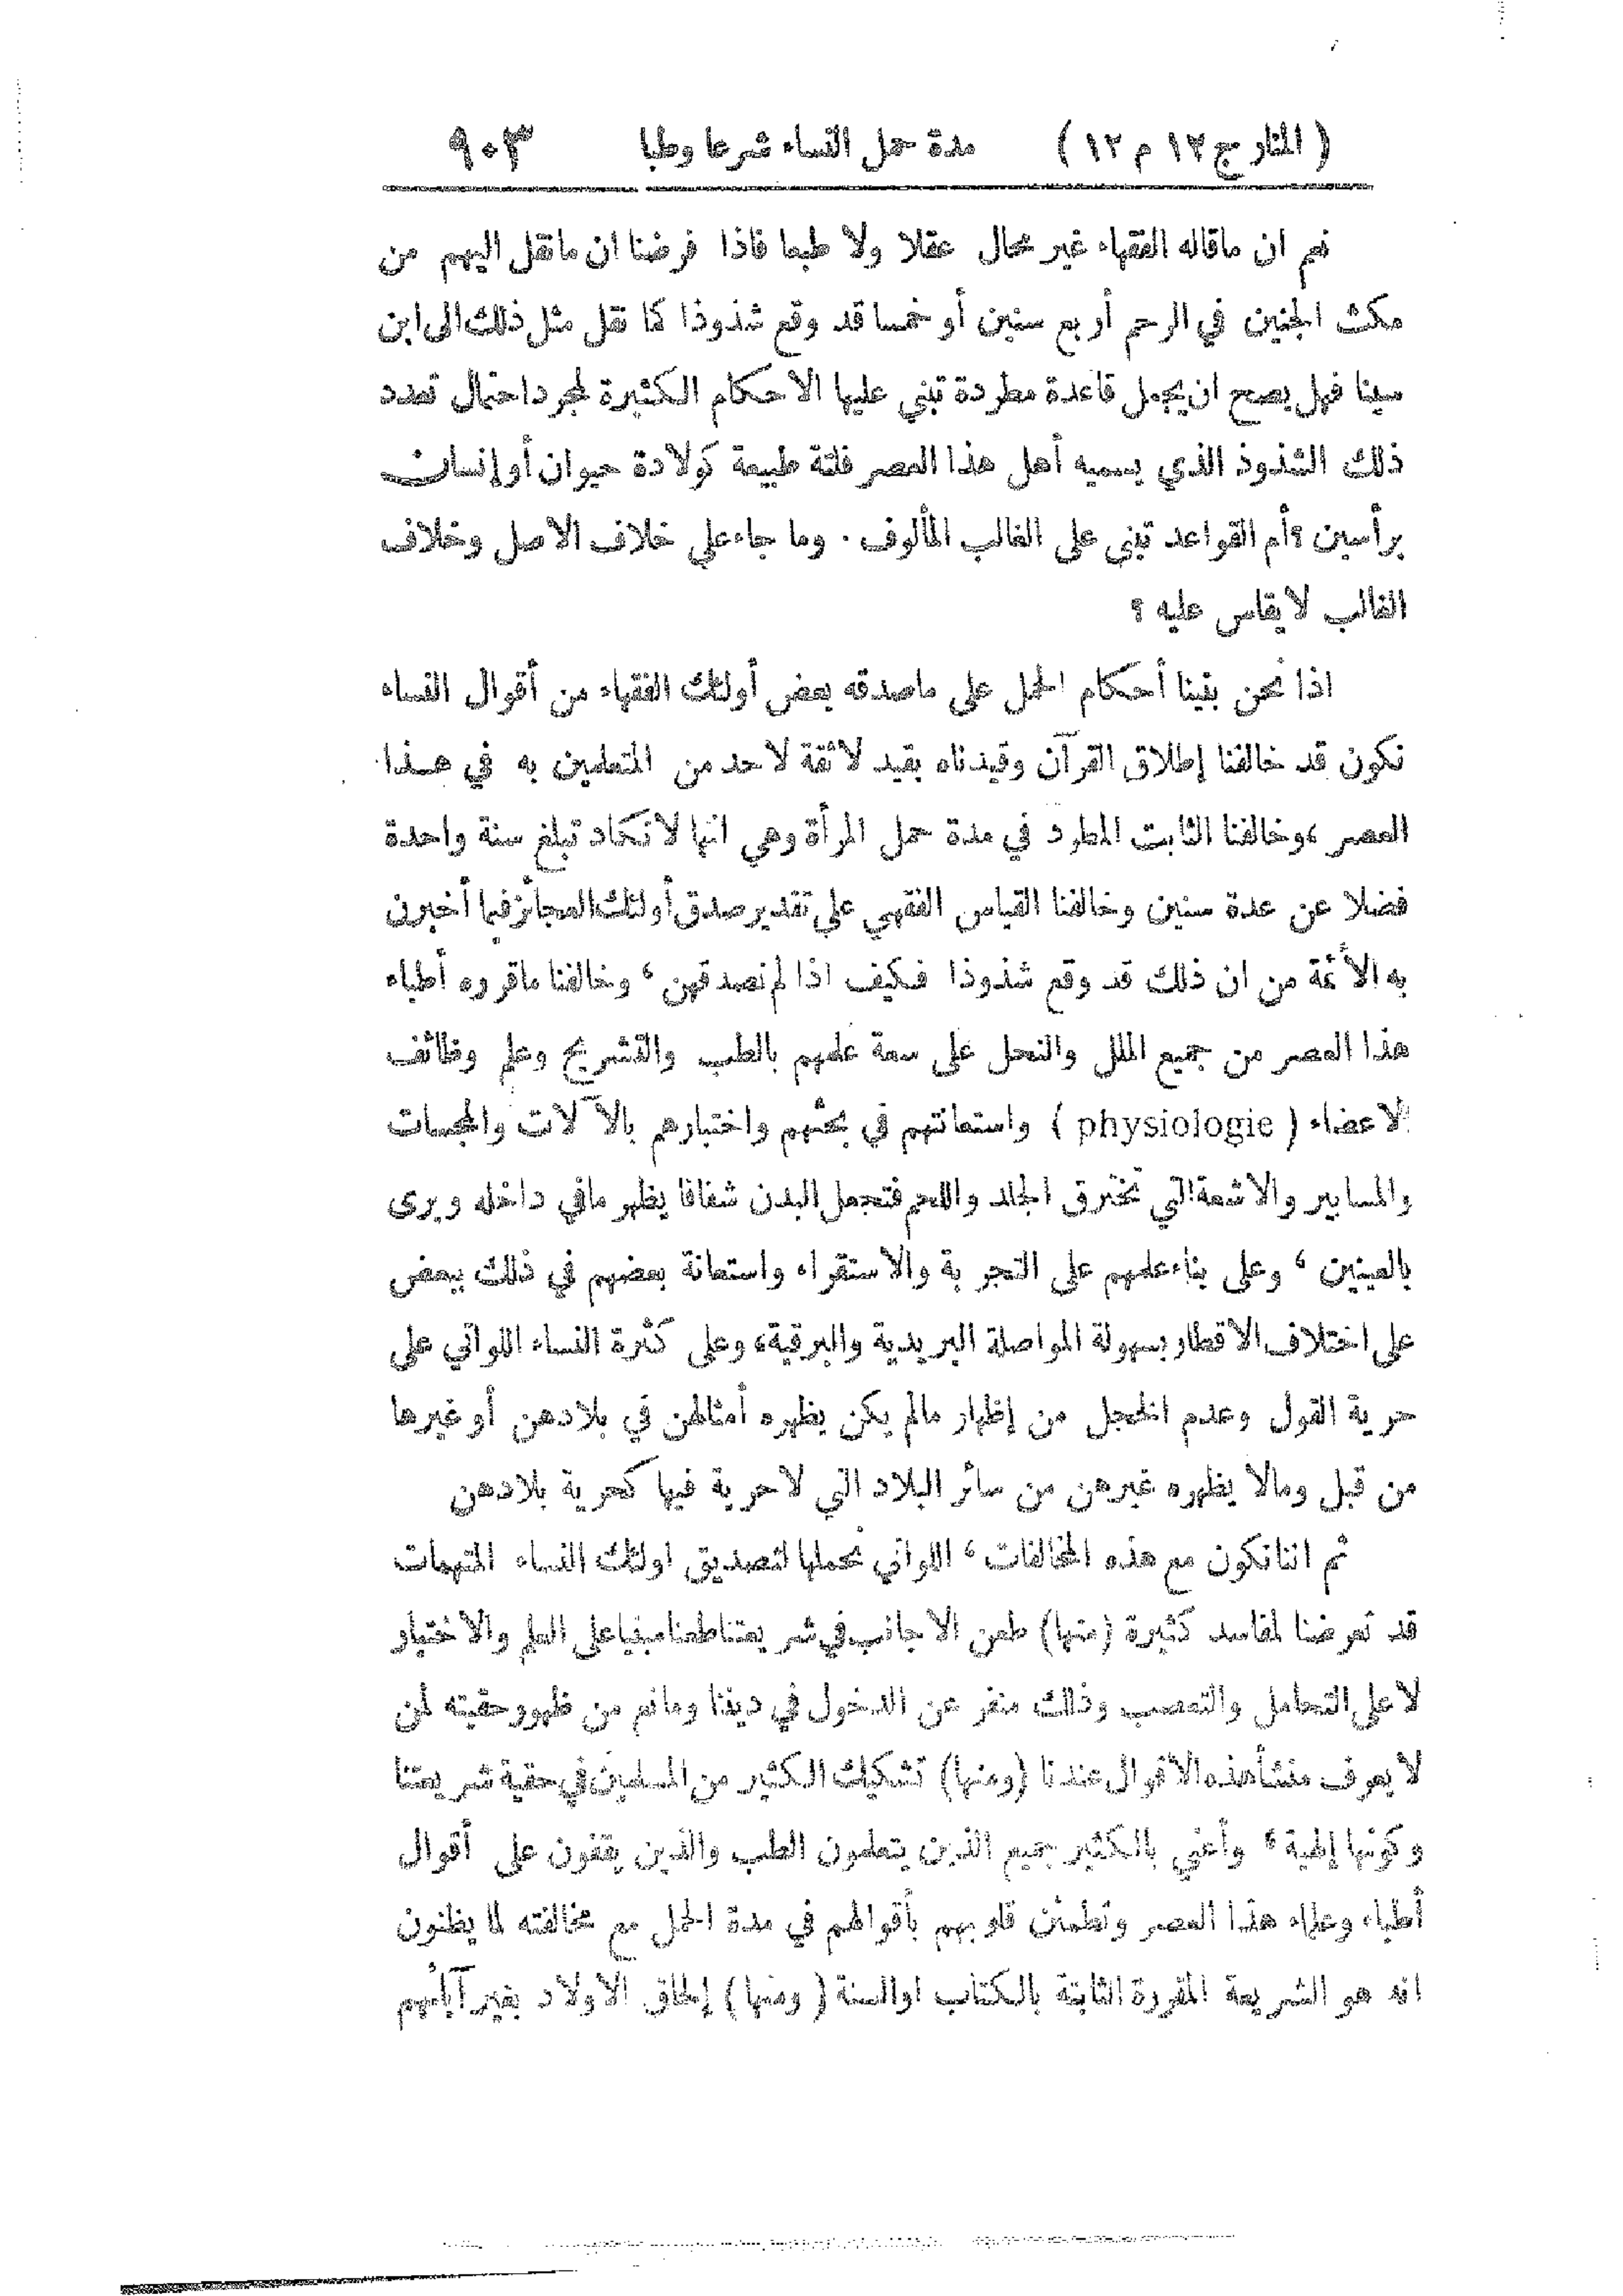 ( المنار ج ١٢ م ١٢ ) مدة حمل النساء شرعا وطبا ٩٠٣
نعم ان ماقاله الفقهاء غير محال عقلا ولا طبعا فاذا فرضنا ان مانقل اليهم من
مكث الجنين في الرحم أربع سنين أو خمسا قد وقع شذوذا كما نقل مثل ذلك الى ابن
سينا فهل يصح ان يجعل قاعدة مطردة تبنى عليها الاحكام الكثيرة لمجرد احتمال تعدد
ذلك الشذوذ الذي يسميه أهل هذا العصر فلتة طبيعة كولادة حيوان أو إنسان
برأسين ؟ أم القواعد تبنى على الغالب المألوف . وما جاء على خلاف الاصل وخلاف
الغالب لا يقاس عليه ؟
اذا نحن بنينا أحكام الحمل على ماصدقه بعض أولئك الفقهاء من أقوال النساء
نكون قد خالفنا إطلاق القرآن وقيدناه بقيد لا ثقة لاحد من المتعلمين به في هذا
العصر ، وخالفنا الثابت المطرد في مدة حمل المرأة وهي انها لا تكاد تبلغ سنة واحدة
فضلا عن عدة سنين وخالفنا القياس الفقهي على تقدير صدق أولئك العجائز فيما أخبرن
به الأئمة من ان ذلك قد وقع شذوذا فكيف اذا لم نصدقهن ، وخالفنا ماقرره أطباء
هذا العصر من جميع الملل والنحل على سعة علمهم بالطب والتشريح وعلم وظائف
الاعضاء ( physiologie ) واستعانتهم في بحثهم واختبارهم بالآ لات والمجسات
والمسابير والاشعة التي تخترق الجلد واللحم فتجعل البدن شفافا يظهر مافي داخله ويرى
بالعينين ، وعلى بناء علمهم على التجربة والاستقراء واستعانة بعضهم في ذلك ببعض
على اختلاف الاقطار بسهولة المواصلة البريدية والبرقية، وعلى كثرة النساء اللواتي على
حرية القول وعدم الخجل من إظهار مالم يكن يظهره أمثالهن في بلادهن أو غيرها
من قبل ومالا يظهره غيرهن من سائر البلاد التي لا حرية فيها كحرية بلادهن
ثم اننا نكون مع هذه المخالفات ، اللواتي نحملها لتصديق اولئك النساء المتهمات
قد تعرضنا لمفاسد كثيرة (منها) طعن الاجانب في شريعتنا طعنا مبنيا على العلم والاختبار
لا على التحامل والتعصب وذلك منفر عن الدخول في ديننا ومانع من ظهور حقيته لمن
لا يعرف منشأ هذه الاقوال عندنا (ومنها) تشكيك الكثير من المسلمين في حقية شريعتنا
وكونها إلهية ، وأعني بالكثير جميع الذين يتعلمون الطب والذين يقفون على أقوال
أطباء وعلماء هذا العصر وتطمئن قلوبهم بأقوالهم في مدة الحمل مع مخالفته لما يظنون
انه هو الشريعة المقررة الثابتة بالكتاب او السنة ( ومنها ) إلحاق الاولاد بغير آبائهم